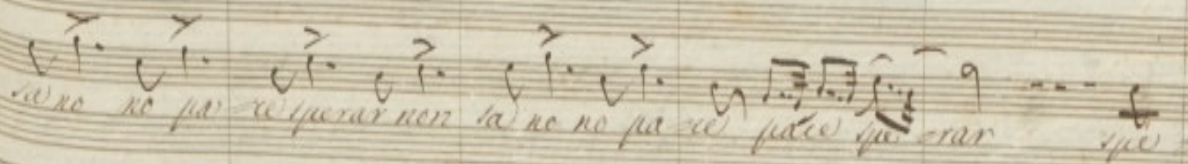 sa no no pa ce sperar non sa no no pa ce pace spe rar spe